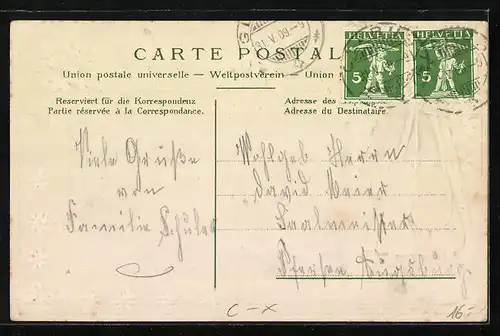 CARTE POSTALE
Union postale universelle — Weltpostverein — Union
Reserviert für die Korrespondenz
Partie réservée à la Correspondance.
Adresse des
Adresse du Destinataire.
HELVETIA
5
HELVETIA
5
31.V.09.-9
Viele Grüße
von
Familie Schuler
Wohlgeb Herrn
David Meier
Saalmeister
Pfersee Augsburg
C-X
16.-